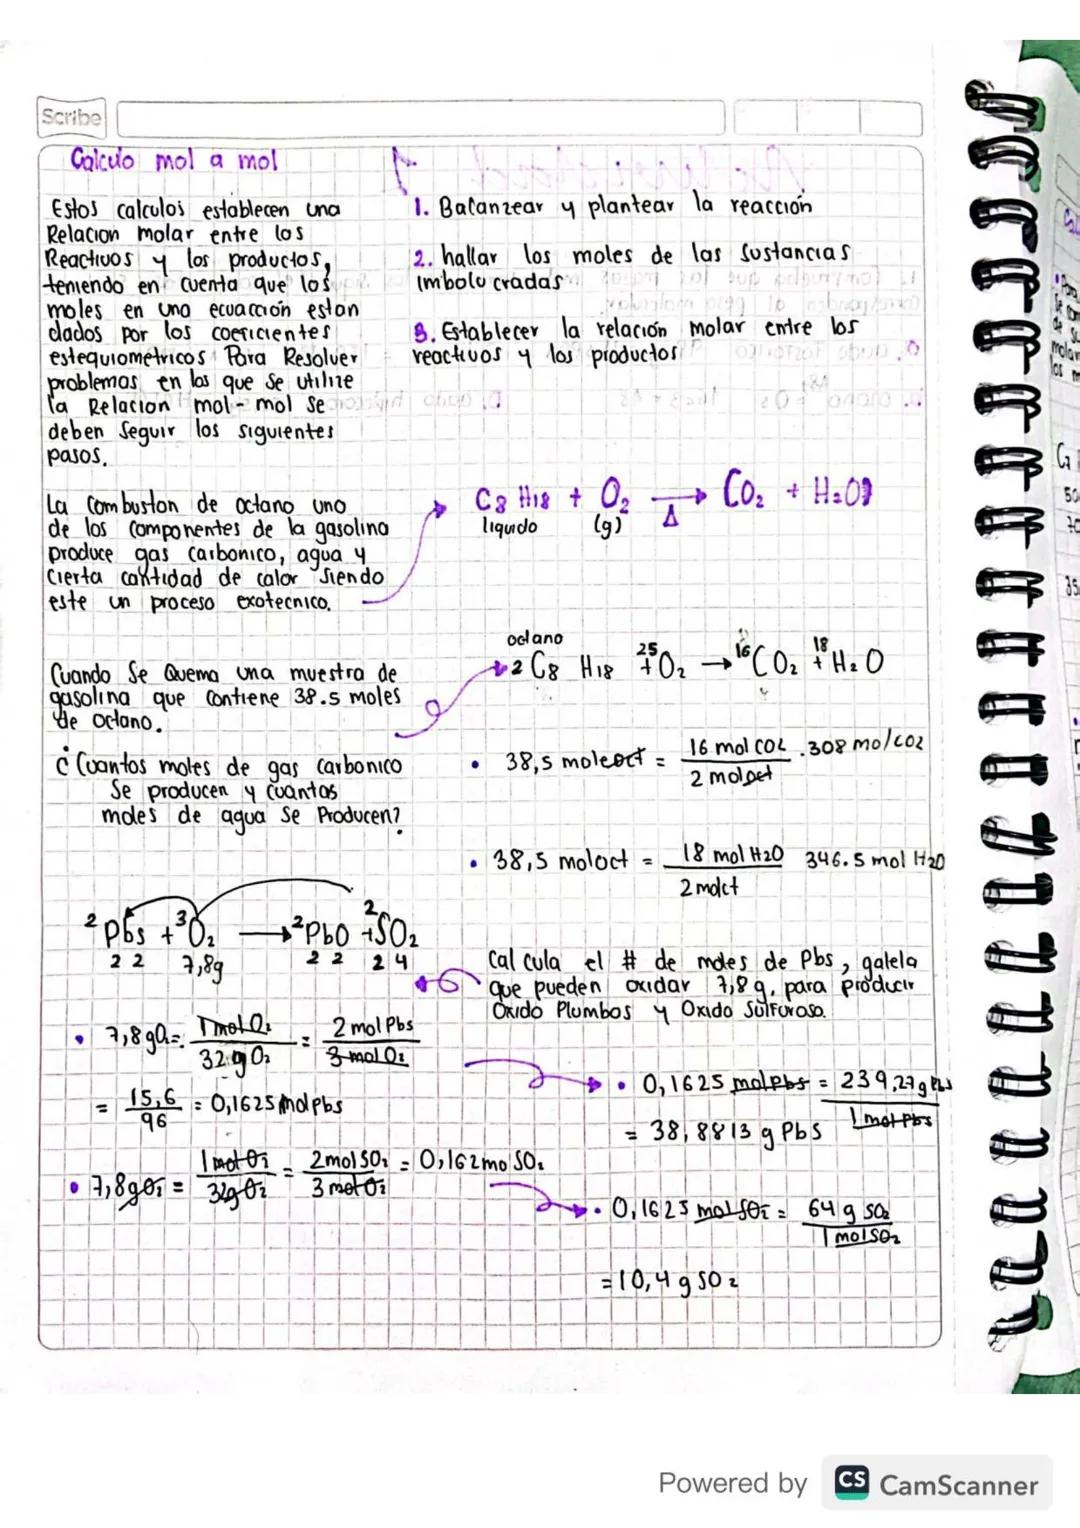 Scribe
Calculo mol a mol
Estos calculos establecen una
Relacion molar entre los
Reactivos y los productos,
teniendo en cuenta que los
moles en una ecuacción estan
dados por los coeficientes
estequiometricos Para Resolver
problemas en los que se utilize
la Relacion mol-mol Se
deben seguir los siguientes
pasos.
1. Balanzear y plantear la reacción
2. hallar los moles de las sustancias
imbolucradas
3. Establecer la relación molar entre los
reactivos y los productos
La combustion de octano uno
de los componentes de la gasolina
produce gas carbonico, agua y
cierta cantidad de calor siendo
este un proceso exotecnico.
C8 H18 + O2 → CO2 + H2O
Δ
liquido (g)
Cuando Se Quema una muestra de
gasolina que contiene 38.5 moles
de octano.
¿Cuantos moles de gas carbonico
Se producen y cuantas
moles de agua Se Producen?
octano
2 C8 H18 + 25 O2 → 16 CO2 + 18 H2O
• 38,5 moleoct = 16 mol CO2 / 2 moloct . 308 mol CO2
• 38,5 moloct = 18 mol H2O / 2 molct 346.5 mol H2O
2 Pbs + 3 O2 → 2 PbO + 2 SO2
2 2 7,8g 2 2 2 4
Calcula el # de moles de Pbs, galela
que pueden oxidar 7,8 g, para producir
Oxido Plumbos y Oxido Sulfuroso.
• 7,8 gO2 = 1 mol O2 / 32 g O2 = 2 mol Pbs / 3 mol O2
= 15,6 / 96 = 0,1625 mol pbs
• 0,1625 molpbs = 239,27g Pbs / 1 mol Pbs
= 38,8813 g PbS
• 7,8gO2 = 1 mol O2 / 32g O2 = 2mol SO2 / 3 mol O2 = 0,162 mo SO2
• 0,1625 mol SO2 = 64 g SO2 / 1 mol SO2
= 10,4 g SO2
Powered by CS CamScanner